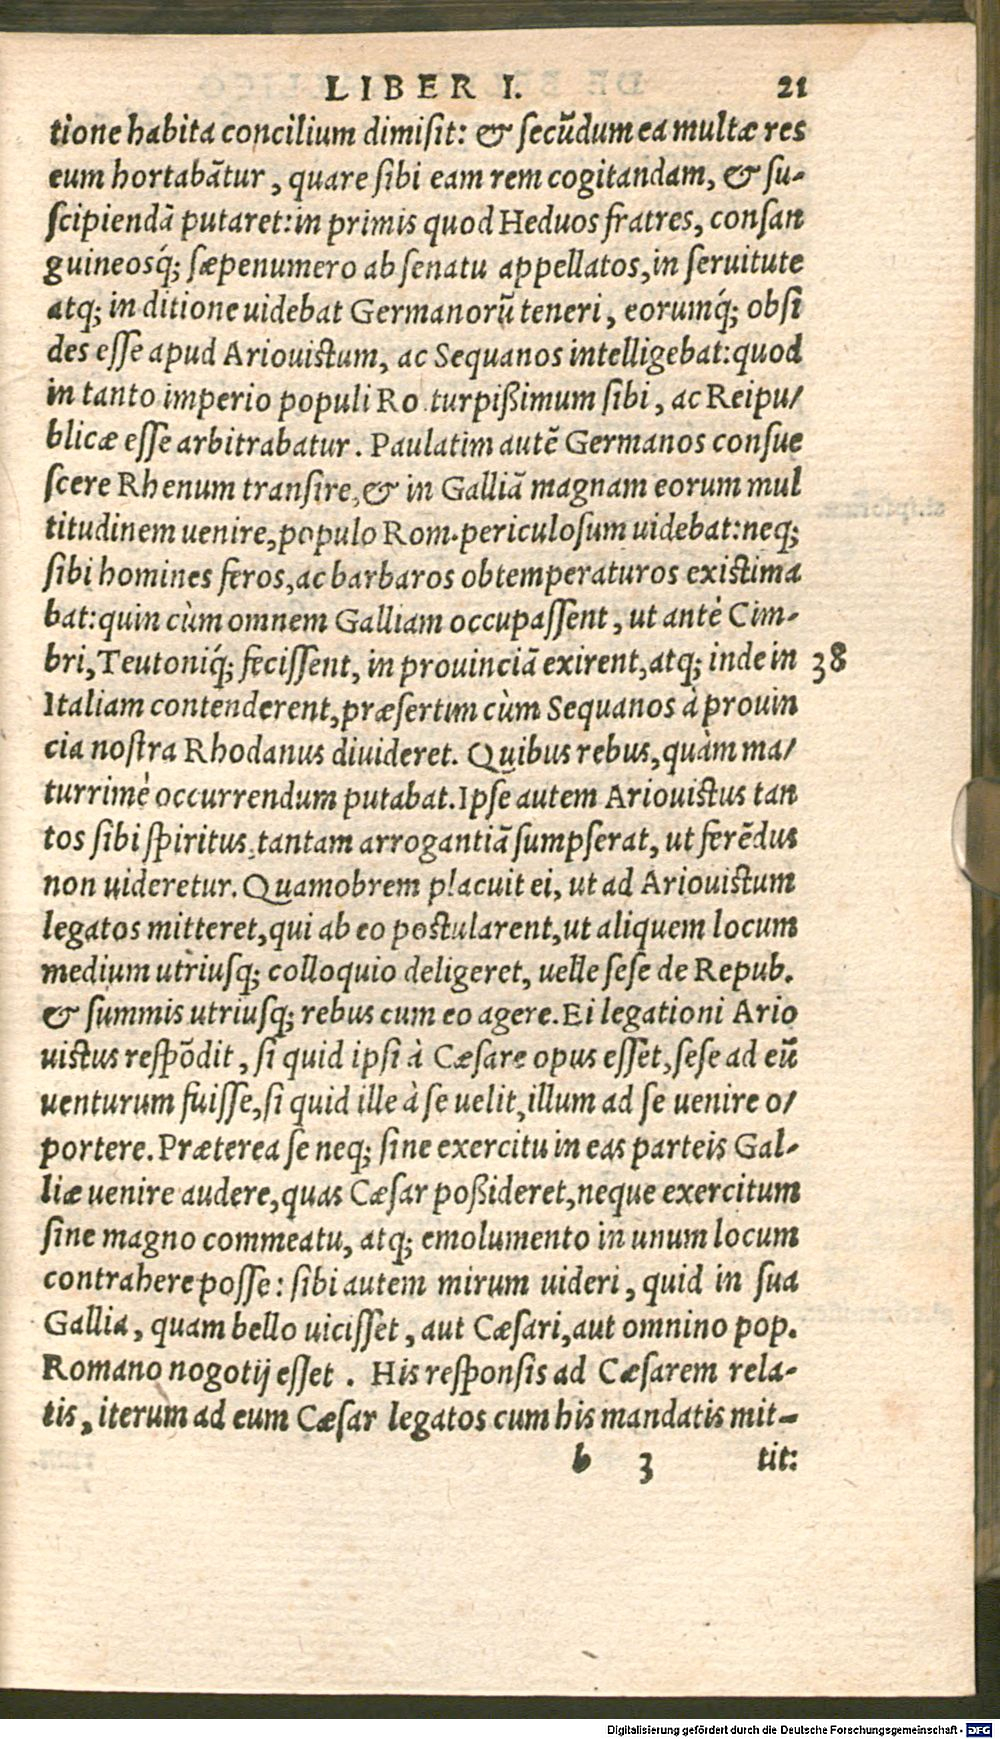 LIBER I. 21
tione habita concilium dimiſit: & ſecūdum ea multæ res
eum hortabātur, quare ſibi eam rem cogitandam, & ſu-
ſcipiendā putaret: in primis quod Heduos fratres, conſan
guineosq́; ſæpenumero ab ſenatu appellatos, in ſeruitute
atq; in ditione uidebat Germanorū teneri, eorumq́; obſi
des eſſe apud Ariouiſtum, ac Sequanos intelligebat: quod
in tanto imperio populi Ro. turpißimum ſibi, ac Reipu/
blicæ eſſe arbitrabatur. Paulatim autē Germanos conſue
ſcere Rhenum tranſire, & in Galliā magnam eorum mul
titudinem uenire, populo Rom. periculoſum uidebat: neq;
ſibi homines feros, ac barbaros obtemperaturos exiſtima
bat: quin cùm omnem Galliam occupaſſent, ut antè Cim-
bri, Teutoniq́; feciſſent, in prouinciā exirent, atq; inde in 38
Italiam contenderent, præſertim cùm Sequanos à prouin
cia noſtra Rhodanus diuideret. Quibus rebus, quàm ma/
turrimè occurrendum putabat. Ipſe autem Ariouiſtus tan
tos ſibi ſpiritus, tantam arrogantiā ſumpſerat, ut ferēdus
non uideretur. Quamobrem placuit ei, ut ad Ariouiſtum
legatos mitteret, qui ab eo poſtularent, ut aliquem locum
medium utriusq; colloquio deligeret, uelle ſeſe de Repub.
& ſummis utriusq; rebus cum eo agere. Ei legationi Ario
uiſtus reſpōdit, ſi quid ipſi à Cæſare opus eſſet, ſeſe ad eū
uenturum fuiſſe, ſi quid ille à ſe uelit, illum ad ſe uenire o/
portere. Præterea ſe neq; ſine exercitu in eas parteis Gal-
liæ uenire audere, quas Cæſar poßideret, neque exercitum
ſine magno commeatu, atq; emolumento in unum locum
contrahere poſſe: ſibi autem mirum uideri, quid in ſua
Gallia, quam bello uiciſſet, aut Cæſari, aut omnino pop.
Romano nogotij eſſet. His reſponſis ad Cæſarem rela-
tis, iterum ad eum Cæſar legatos cum his mandatis mit-
b 3 tit:
Digitalisierung gefördert durch die Deutsche Forschungsgemeinschaft - DFG